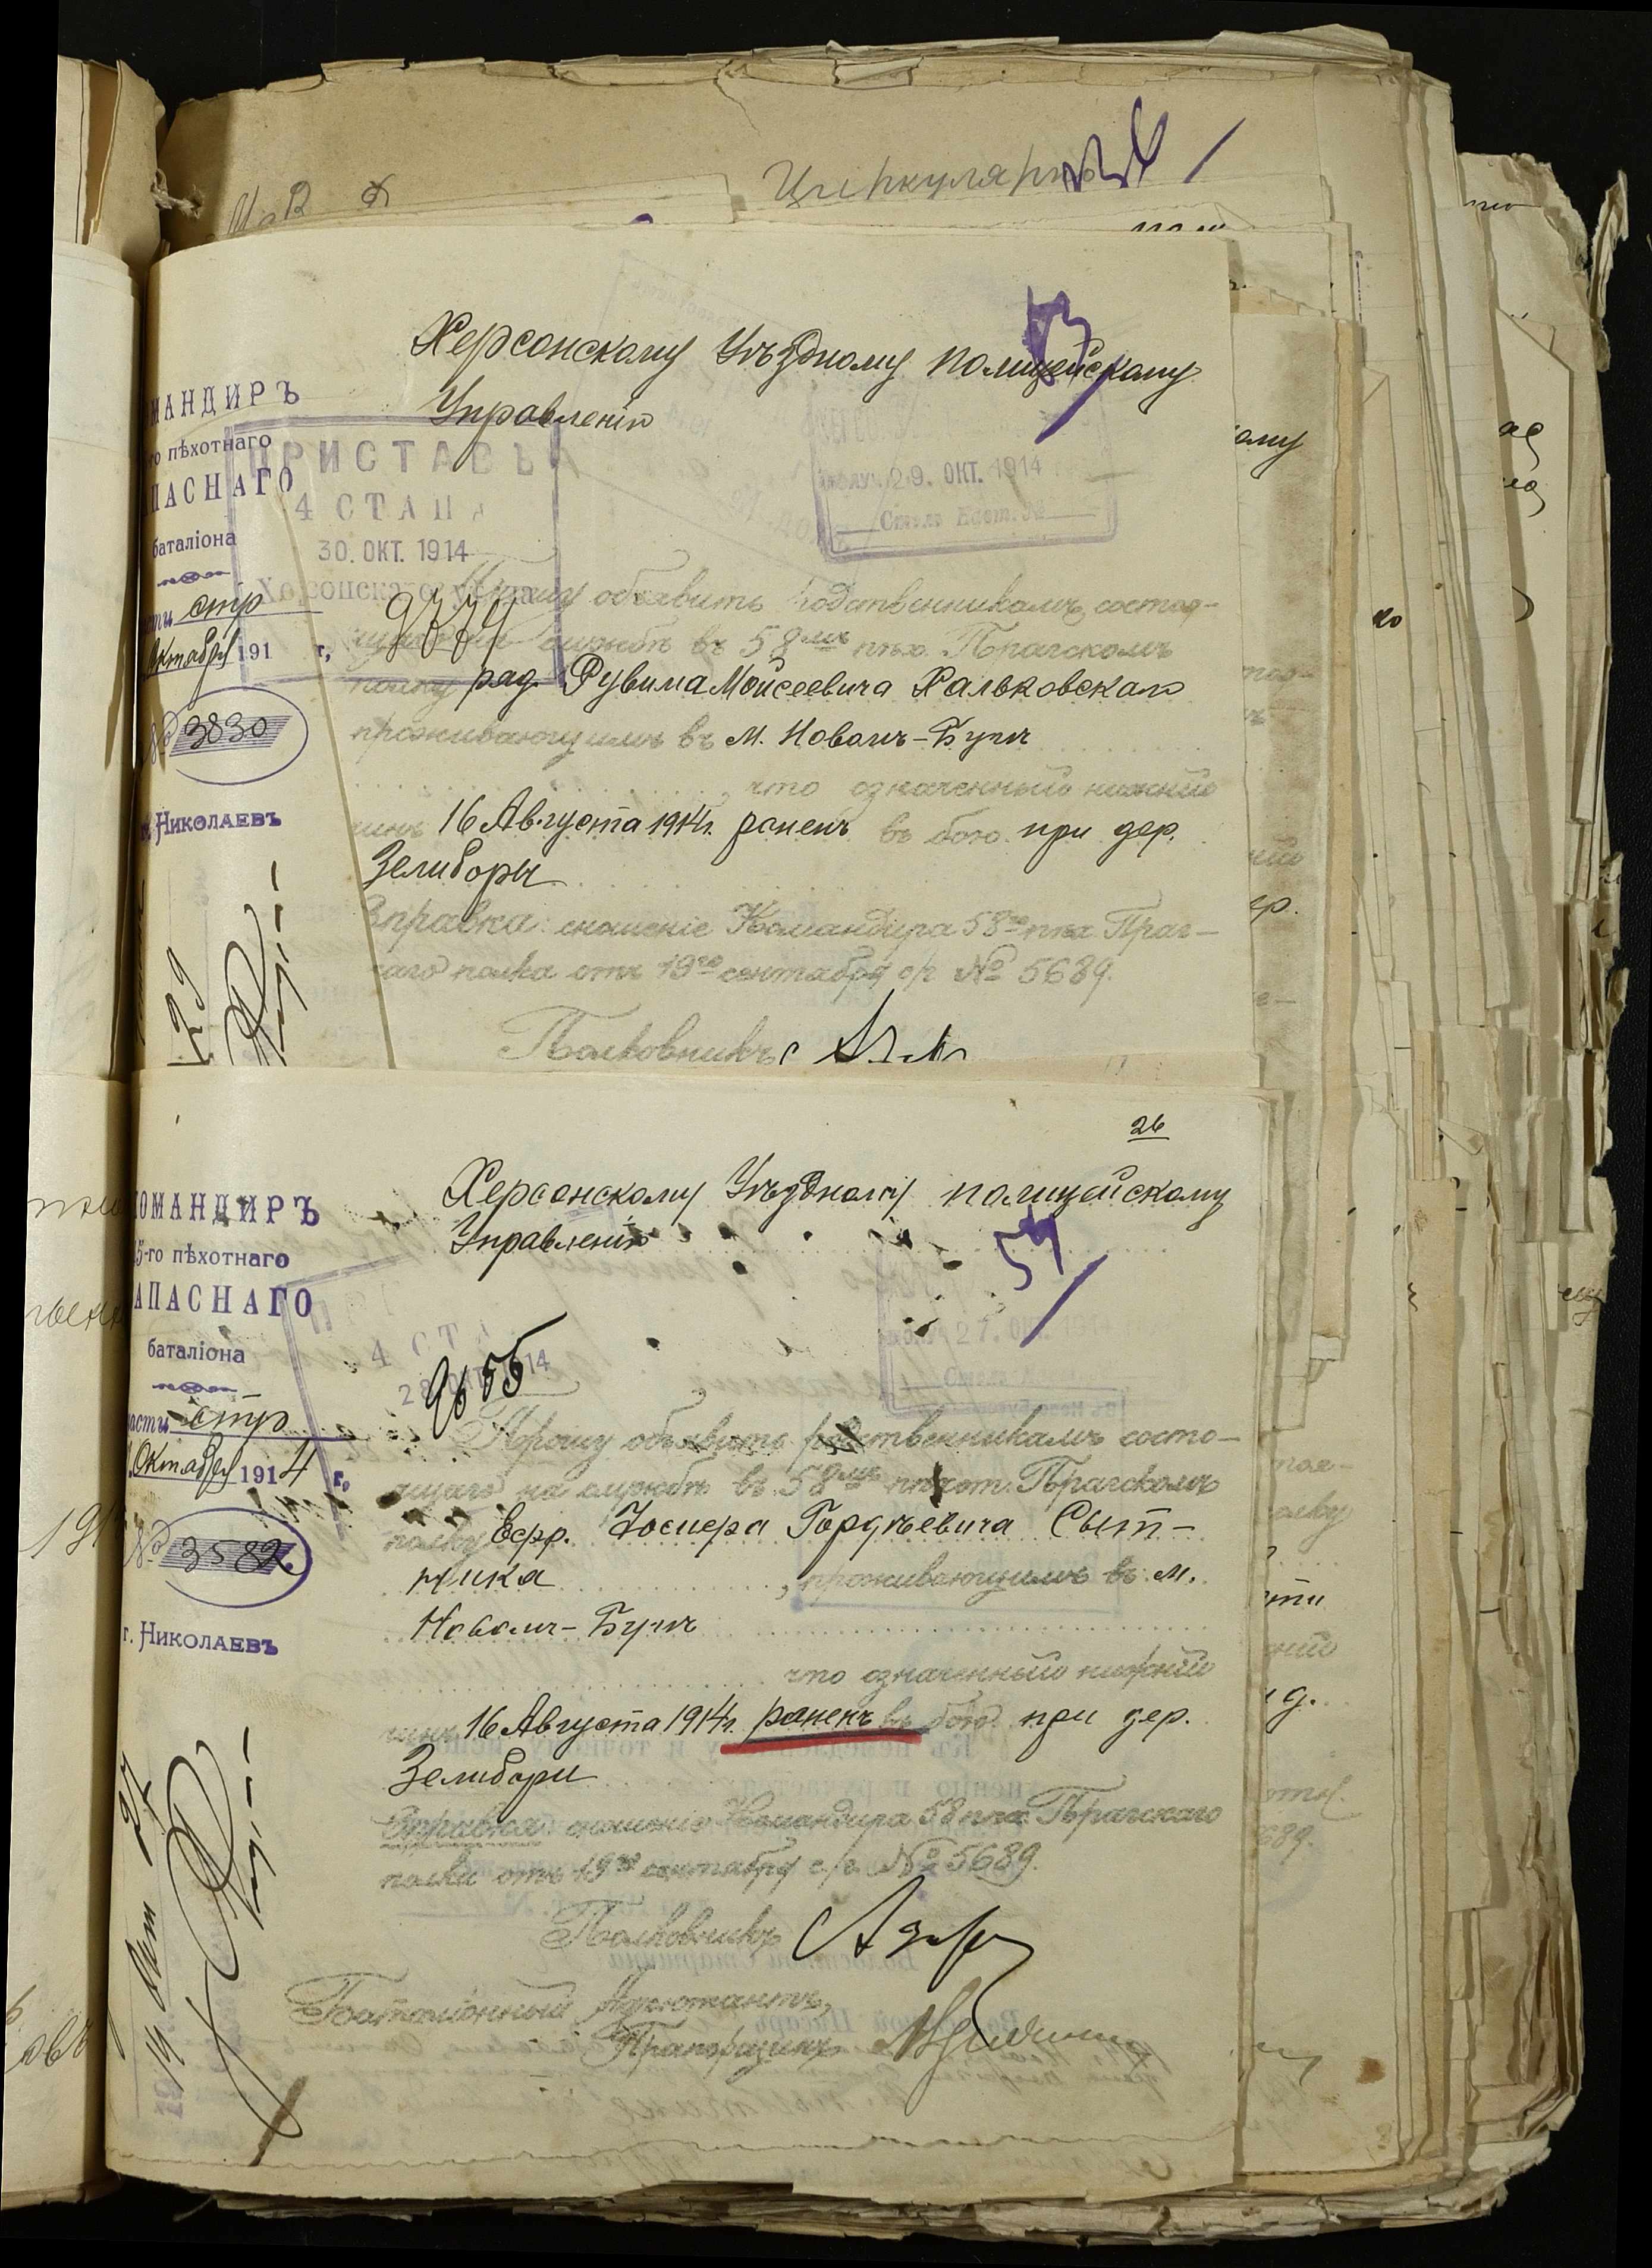 Циркулярно
53
Херсонскому Уѣздному полицейскому
Управленію
МАНДИРЪ
го пѣхотнаго
ПАСНАГО
баталіона
сти стр
Октября 191 г,
№ 3830
г. НИКОЛАЕВЪ
ПРИСТАВЪ
4 СТАНА
30. ОКТ. 1914
Херсонскаго уѣзда
29. ОКТ. 1914
Прошу объявить родственникамъ состоя-
щаго на службѣ въ 58мъ пѣх. Прагскомъ
полку ряд. Рувима Мойсеевича Хальковскаго
проживающимъ въ м. Новомъ-Бугѣ
, что означенный нижній
чинъ 16 Августа 1914г. раненъ въ бою при дер.
Зелиборы
Справка: сношеніе Командира 58го пѣх. Праг-
скаго полка отъ 19го сентября с/г № 5689.
Полковникъ
26
Херсонскому Уѣздному полицейскому
Управленію
54
КОМАНДИРЪ
5-го пѣхотнаго
ЗАПАСНАГО
баталіона
части стр
Октября 1914 г.
№ 3582
г. НИКОЛАЕВЪ
4 СТА
28 14
27. 1914
9655
Прошу объявить родственникамъ состо-
ящаго на службѣ въ 58мъ пѣхот. Прагскомъ
полку Ефр. Іосифа Гордѣевича Сыт-
ника , проживающимъ въ м.
Новомъ-Бугѣ
что означенный нижній
чинъ 16 Августа 1914г. раненъ въ бою при дер.
Зелибори
Справка: сношеніе Командира 58 пѣх. Прагскаго
полка отъ 19го сентября с/г. № 5689.
Полковникъ
Баталіонный Адъютантъ,
Прапорщикъ